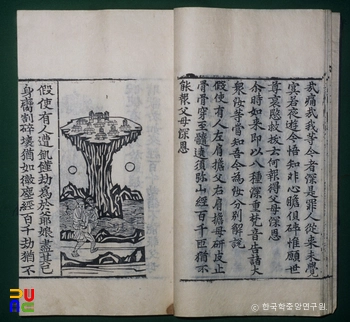 武痛哉我等今者深是罪人從來未覺
冥若夜遊今悟知非心膽俱碎惟願世
尊哀愍救拔云何報得父母深恩
尒時如來即以八種深重梵音告諸大
衆汝等當知吾今為汝分別解說
假使有人左肩擔父右肩擔母研皮至
骨骨穿至髓遶須弥山經百千匝猶不
能報父母深恩
假使有人遭飢饉劫為於爺娘盡其己
身臠割碎壞猶如微塵經百千劫猶不
© 한국학중앙연구원